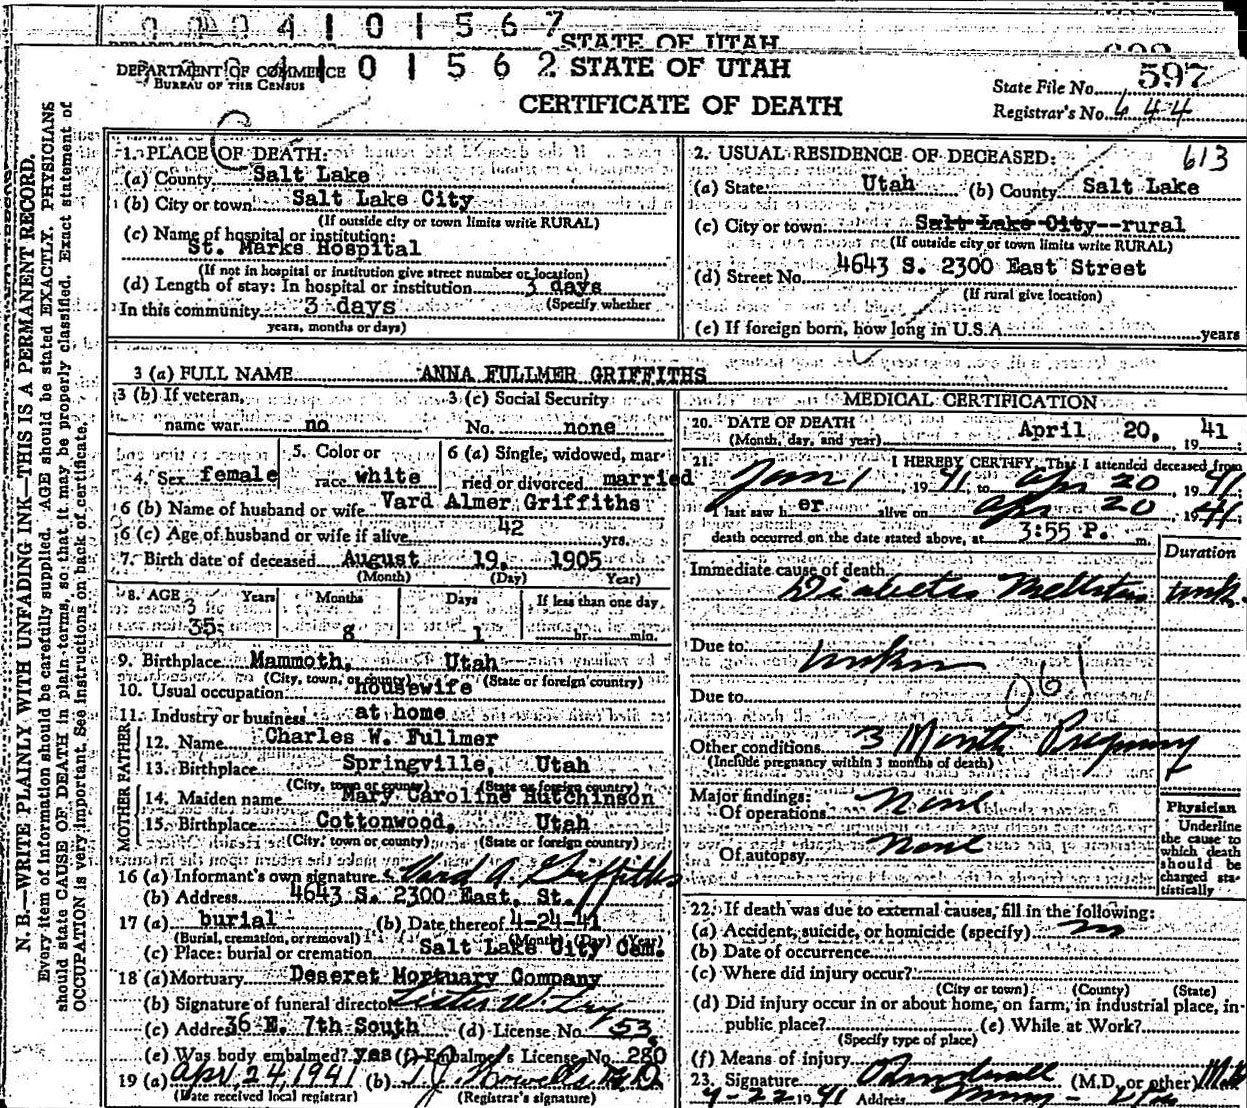 0 0 0 4 1 0 1 5 6 7
STATE OF UTAH
DEPARTMENT OF COMMERCE 4 1 0 1 5 6 2 STATE OF UTAH
BUREAU OF THE CENSUS
CERTIFICATE OF DEATH
State File No. 597
Registrar's No. 644
N. B.—WRITE PLAINLY WITH UNFADING INK—THIS IS A PERMANENT RECORD.
Every item of information should be carefully supplied. AGE should be stated EXACTLY. PHYSICIANS
should state CAUSE OF DEATH in plain terms, so that it may be properly classified. Exact statement of
OCCUPATION is very important. See instructions on back of certificate.
1. PLACE OF DEATH:
(a) County Salt Lake
(b) City or town Salt Lake City
(If outside city or town limits write RURAL)
(c) Name of hospital or institution:
St. Marks Hospital
(If not in hospital or institution give street number or location)
(d) Length of stay: In hospital or institution 3 days
(Specify whether
In this community 3 days
years, months or days)
2. USUAL RESIDENCE OF DECEASED: 613
(a) State Utah (b) County Salt Lake
(c) City or town Salt Lake City--rural
(If outside city or town limits write RURAL)
(d) Street No. 4643 S. 2300 East Street
(If rural give location)
(e) If foreign born, how long in U.S.A. years
3 (a) FULL NAME ANNA FULLMER GRIFFITHS
3 (b) If veteran, 3 (c) Social Security
name war no No. none
4. Sex female 5. Color or race white 6 (a) Single, widowed, married or divorced married
6 (b) Name of husband or wife Vard Almer Griffiths
6 (c) Age of husband or wife if alive 42 yrs.
7. Birth date of deceased August 19, 1905
(Month) (Day) Year)
8. AGE Years Months Days If less than one day
3
35 8 1 hr. min.
9. Birthplace Mammoth, Utah
(City, town, or county) (State or foreign country)
10. Usual occupation housewife
11. Industry or business at home
FATHER
12. Name Charles W. Fullmer
13. Birthplace Springville, Utah
(City, town or county) (State or foreign country)
MOTHER
14. Maiden name Mary Caroline Hutchinson
15. Birthplace Cottonwood, Utah
(City, town or county) (State or foreign country)
16 (a) Informant's own signature Vard A. Griffiths
(b) Address 4643 S. 2300 East, St.
17 (a) burial (b) Date thereof 4-24-41
(Burial, cremation, or removal) (Month) (Day) (Year)
(c) Place: burial or cremation Salt Lake City Cem.
18 (a) Mortuary Deseret Mortuary Company
(b) Signature of funeral director
(c) Address 36 E. 7th South (d) License No. 53
(e) Was body embalmed? yes (f) Embalmer's License No. 280
19 (a) Apr, 24, 1941 (b)
(Date received local registrar) (Registrar's signature)
MEDICAL CERTIFICATION
20. DATE OF DEATH April 20, 1941
(Month, day, and year)
21. I HEREBY CERTIFY, That I attended deceased from
Jan 1, 1941 to Apr 20, 1941
I last saw her alive on Apr 20, 1941
death occurred on the date stated above, at 3:55 P. m.
Duration
Immediate cause of death
Diabetes Mellitus unk.
Due to unkn
061
Due to
Other conditions 3 Month Pregnancy
(Include pregnancy within 3 months of death)
Major findings:
Of operations None
Of autopsy None
Physician
Underline
the cause to
which death
should be
charged sta-
tistically
22. If death was due to external causes, fill in the following:
(a) Accident, suicide, or homicide (specify) no
(b) Date of occurrence
(c) Where did injury occur?
(City or town) (County) (State)
(d) Did injury occur in or about home, on farm, in industrial place, in-
public place? (e) While at Work?
(Specify type of place)
(f) Means of injury
23. Signature (M.D. or other)
4-22 1941 Address